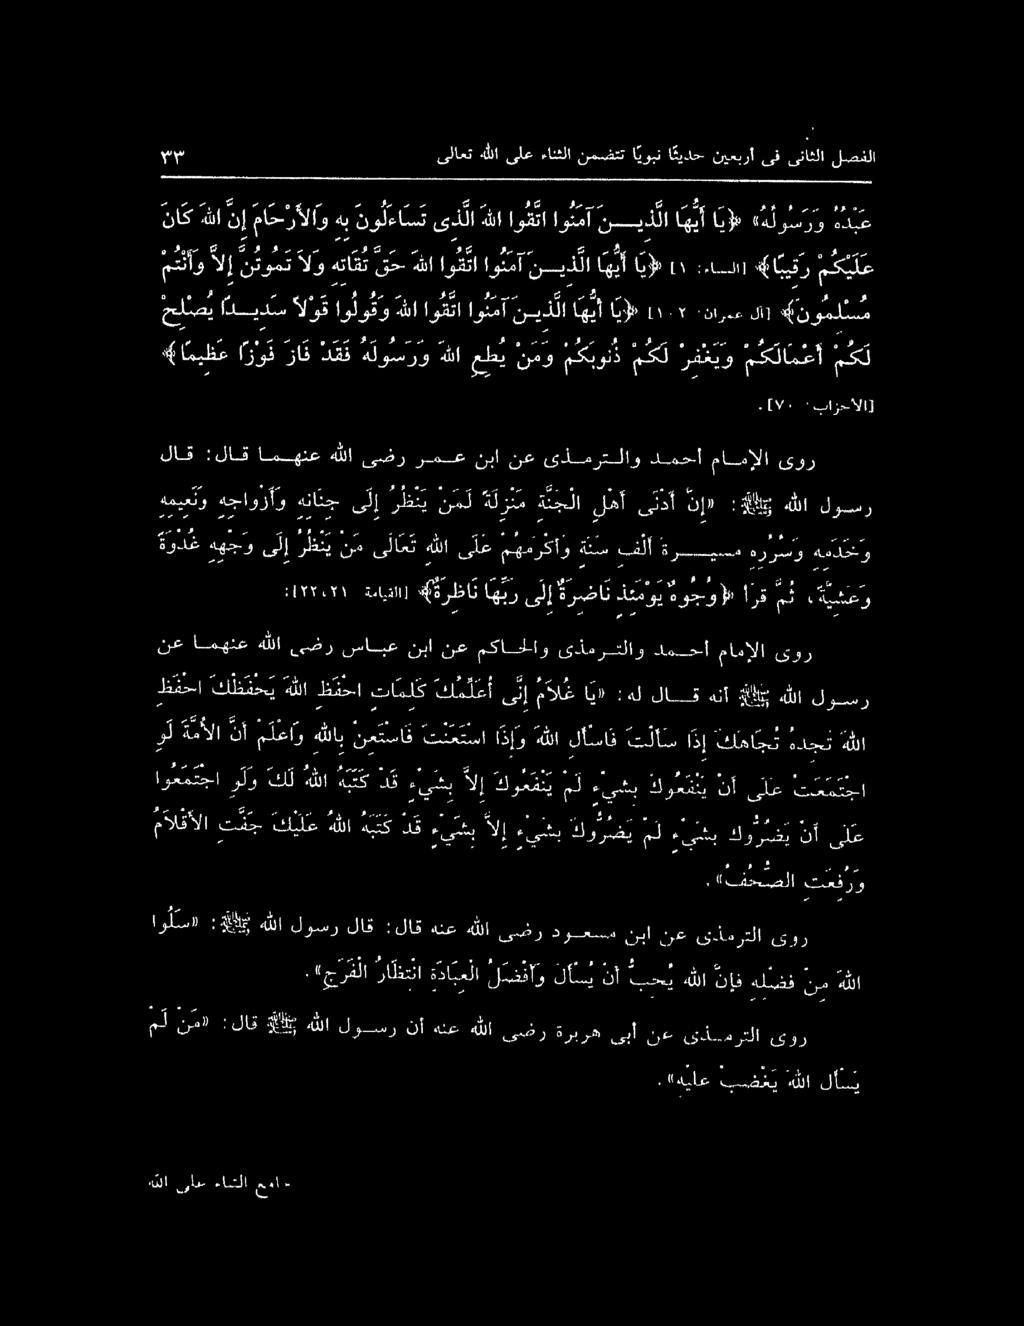 الفصل الثانى فى أربعين حديثا نبويًا تتضمن الثناء على الله تعالى ٣٣
عَبْدُهُ وَرَسُولُهُ» ﴿يَا أَيُّهَا الَّذِيــنَ آمَنُوا اتَّقُوا اللهَ الَّذِى تَسَاءَلُونَ بِهِ وَالأَرْحَامَ إِنَّ اللهَ كَانَ
عَلَيْكُمْ رَقِيبًا﴾ [النساء: ١] ﴿يَا أَيُّهَا الَّذِيــنَ آمَنُوا اتَّقُوا اللهَ حَقَّ تُقَاتِهِ وَلاَ تَمُوتُنَّ إِلاَّ وَأَنْتُمْ
مُسْلِمُونَ﴾ [آل عمران ١٠٢] ﴿يَا أَيُّهَا الَّذِيـنَ آمَنُوا اتَّقُوا اللهَ وَقُولُوا قَوْلاً سَدِيــدًا يُصْلِحْ
لَكُمْ أَعْمَالَكُمْ وَيَغْفِرْ لَكُمْ ذُنُوبَكُمْ وَمَنْ يُطِعِ اللهَ وَرَسُولَهُ فَقَدْ فَازَ فَوْزًا عَظِيمًا﴾
[الأحزاب ٧٠].
روى الإمــام أحمـد والـترمـذى عن ابن عـمـر رضى الله عنهـمـا قـال: قـال
رسـول الله ﷺ: «إِنَّ أَدْنَى أَهْلِ الْجَنَّةِ مَنْزِلَةً لَمَنْ يَنْظُرُ إِلَى جِنَانِهِ وَأَزْوَاجِهِ وَنَعِيمِهِ
وَخَدَمِهِ وَسُرُرِهِ مسيــــرة أَلْفِ سَنَةٍ وَأَكْرَمَهُمْ عَلَى اللهِ تَعَالَى مَنْ يَنْظُرُ إِلَى وَجْهِهِ غُدْوَةً
وَعَشِيَّةً، ثُمَّ قرأ ﴿وُجُوهٌ يَوْمَئِذٍ نَاضِرَةٌ إِلَى رَبِّهَا نَاظِرَةٌ﴾ [القيامة ٢١،٢٢]:
روى الإمام أحـمـد والتـرمـذى والحـاكم عن ابن عبـاس رضى الله عنهمـا عن
رسـول الله ﷺ أنه قــال له: «يَا غُلاَمُ إِنِّى أُعَلِّمُكَ كَلِمَاتٍ احْفَظِ اللهَ يَحْفَظْكَ احْفَظِ
اللهَ تَجِدْهُ تُجَاهَكَ إِذَا سَأَلْتَ فَاسْأَلِ اللهَ وَإِذَا اسْتَعَنْتَ فَاسْتَعِنْ بِاللهِ وَاعْلَمْ أَنَّ الأُمَّةَ لَوِ
اجْتَمَعَتْ عَلَى أَنْ يَنْفَعُوكَ بِشَيْءٍ لَمْ يَنْفَعُوكَ إِلاَّ بِشَيْءٍ قَدْ كَتَبَهُ اللهُ لَكَ وَلَوِ اجْتَمَعُوا
عَلَى أَنْ يَضُرُّوكَ بِشَيْءٍ لَمْ يَضُرُّوكَ بِشَيْءٍ إِلاَّ بِشَيْءٍ قَدْ كَتَبَهُ اللهُ عَلَيْكَ جَفَّتِ الأَقْلاَمُ
وَرُفِعَتِ الصُّحُفُ».
روى الترمذى عن ابن مسعـود رضى الله عنه قال: قال رسول الله ﷺ: «سَلُوا
اللهَ مِنْ فَضْلِهِ فَإِنَّ اللهَ يُحِبُّ أَنْ يُسْأَلَ وَأَفْضَلُ الْعِبَادَةِ انْتِظَارُ الْفَرَجِ».
روى الترمـذى عن أبى هريرة رضى الله عنه أن رسـول الله ﷺ قال: «مَنْ لَمْ
يَسْأَلِ اللهَ يَغْضَبْ عليه».
الثناء على الله